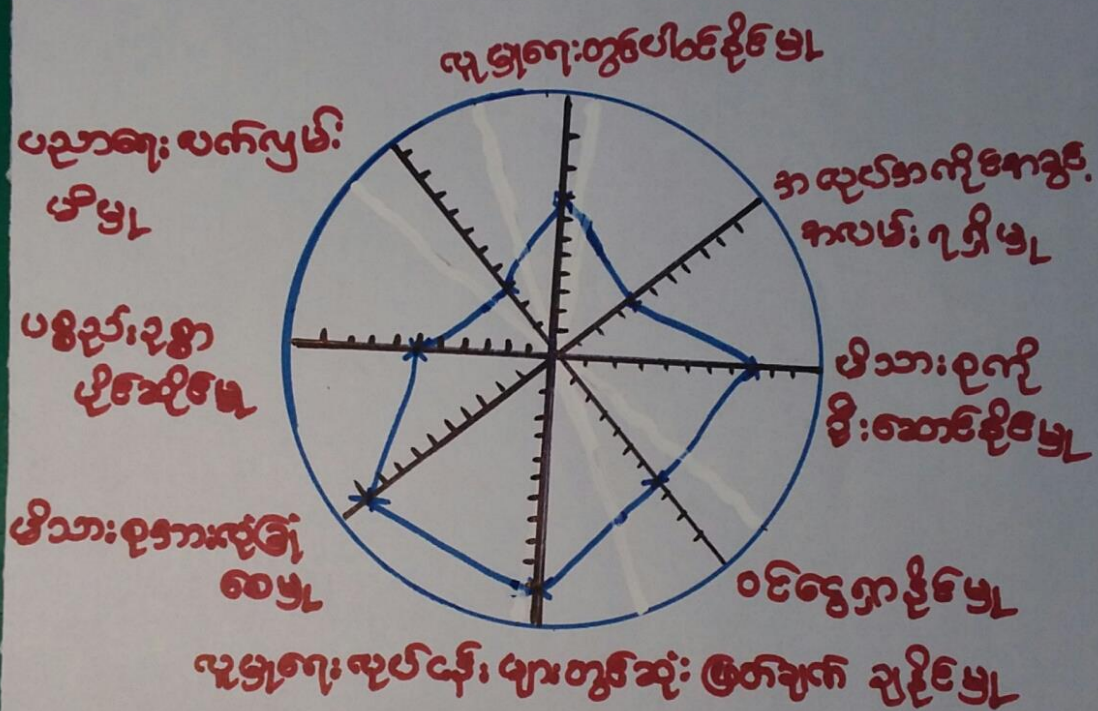 လူမှုရေးတွင်ပါဝင်နိုင်မှု
အလုပ်အကိုင်အခွင့်
အလမ်းရရှိမှု
မိသားစုကို
ဦးဆောင်နိုင်မှု
ဝင်ငွေရှာနိုင်မှု
လူမှုရေးလုပ်ငန်းများတွင်ဆုံးဖြတ်ချက် ချနိုင်မှု
မိသားစုအားလုံခြုံ
စေမှု
ပစ္စည်းဥစ္စာ
ပိုင်ဆိုင်မှု
ပညာရေး လက်လှမ်း
မီမှု